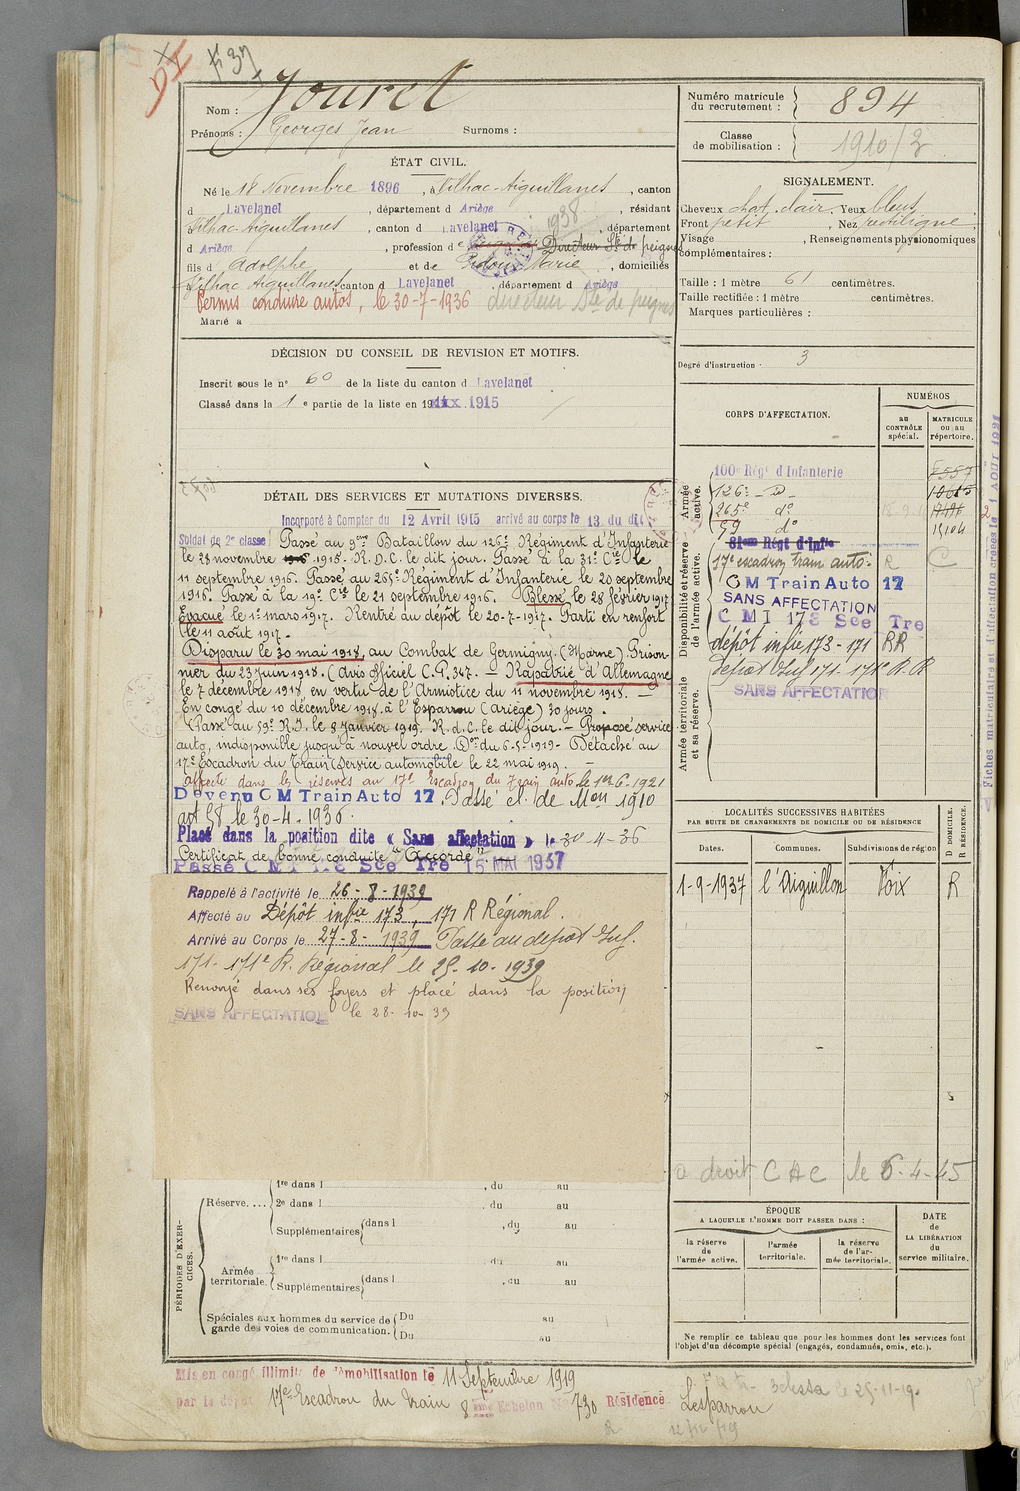 F 37
Nom : Jouret
Prénoms : Georges Jean Surnoms :
Numéro matricule du recrutement : 894
Classe de mobilisation : 1910/3
ÉTAT CIVIL.
Né le 18 Novembre 1896, à Vilhac-Aiguillanes, canton
d Lavelanet, département d Ariège, résidant
Vilhac Aiguillanes, canton d Lavelanet, département
1938
d Ariège, profession de Directeur Sté de peignes
fils d Adolphe et de Marie, domiciliés
Vilhac Aiguillanes, canton d Lavelanet, département d Ariège
Permis conduire autos, le 30-7-1936 directeur Sté de peignes
Marié à
SIGNALEMENT.
Cheveux chat. clair. Yeux bleus
Front petit, Nez rectiligne
Visage , Renseignements physionomiques
complémentaires :
Taille : 1 mètre 61 centimètres.
Taille rectifiée : 1 mètre centimètres.
Marques particulières :
Degré d'instruction : 3
DÉCISION DU CONSEIL DE REVISION ET MOTIFS.
Inscrit sous le n° 60 de la liste du canton d Lavelanet
Classé dans la 1 e partie de la liste en 1915
DÉTAIL DES SERVICES ET MUTATIONS DIVERSES.
Incorporé à Compter du 12 Avril 1915 arrivé au corps le 13 du dit
Soldat de 2e classe Passé au 9ème Bataillon du 126e Régiment d'Infanterie
le 28 novembre 1915. R.D.C. le dit jour. Passé à la 31e Cie le
11 septembre 1916. Passé au 265e Régiment d'Infanterie le 20 septembre
1916. Passé à la 19e Cie le 21 septembre 1916. Blessé le 28 février 1917
Evacué le 1er mars 1917. Rentré au dépôt le 20-7-1917. Parti en renfort
le 11 août 1917.
Disparu le 30 mai 1918, au Combat de Germigny. (Marne). Prison-
nier du 23 juin 1918. (avis officiel C.P. 347. — Rapatrié d'Allemagne
le 7 décembre 1918, en vertu de l'Armistice du 11 novembre 1918. —
En congé du 10 décembre 1918. à l'Esparrou (Ariège) 30 jours.
Passé au 59e R.I. le 8 Janvier 1919. R.d.C. le dit jour. — Proposé service
auto, indisponible jusqu'à nouvel ordre Don du 6-5-1919 - Détaché au
17e Escadron du Train (Service automobile le 22 mai 1919. —
affecté dans les réserves au 17e Escadron du Train auto. le 1er 6.1921
Devenu C M Train Auto 17. Passé cl. de Mon 1910
art 58 le 30-4-1936.
Placé dans la position dite « Sans affectation » le 30-4-36
Certificat de bonne conduite "Accordé"
Passé C M I 173 Sce Tre 15 MAI 1937
Rappelé à l'activité le 26-8-1939
Affecté au Dépôt infie 173, 171 R Régional.
Arrivé au Corps le 27-8-1939 Passé au dépôt Inf.
171- 171e R. Régional le 25-10-1939
Renvoyé dans ses foyers et placé dans la position
SANS AFFECTATION le 28-10-39
CORPS D'AFFECTATION.
NUMÉROS
au CONTRÔLE spécial.
MATRICULE ou au répertoire.
Armée active.
100e Régt d'Infanterie
126e - d° -
265e d°
59 d° 15104
Disponibilité et réserve de l'armée active.
81ème Régt d'Infie
17e escadron train auto. R C
C M Train Auto 17
SANS AFFECTATION
C M I 173 Sce Tre
dépôt infie 173 - 171 RR
dépôt Inf 171 - 171e R.R
Armée territoriale et sa réserve.
SANS AFFECTATION
Fiches matriculaire et d'affectation créées le 1 AOÛT 1921
LOCALITÉS SUCCESSIVES HABITÉES
PAR SUITE DE CHANGEMENTS DE DOMICILE OU DE RÉSIDENCE
Dates. Communes. Subdivisions de région
D DOMICILE. R RÉSIDENCE.
1-9-1937 l'Aiguillon Foix R
a droit C A C le 6-4-45
PÉRIODES D'EXERCICES.
Réserve....
1re dans l , du au
2e dans l , du au
Supplémentaires dans l , du au
Armée territoriale.
1re dans l , du au
Supplémentaires dans l , du au
Spéciales aux hommes du service de garde des voies de communication.
Du au
Du au
ÉPOQUE
A LAQUELLE L'HOMME DOIT PASSER DANS :
la réserve de l'armée active.
l'armée territoriale.
la réserve de l'armée territoriale.
DATE de LA LIBÉRATION du service militaire.
Ne remplir ce tableau que pour les hommes dont les services font
l'objet d'un décompte spécial (engagés, condamnés, omis, etc.).
Mis en congé illimité de démobilisation le 11 Septembre 1919
par le dépôt 17e Escadron du train 8 ème Echelon N° 730 Résidence Lesparrou
le 25-11-19.
R 12/12/19